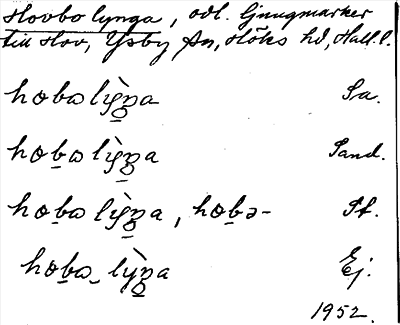 Hovbo lynga, odl. ljungmarker
till Hov, Ysby sn, Höks hd, Hall. l.
hɷbɷ lỳŋa Sa.
hɷbɷ lỳŋa Sand.
hɷbɷ lỳŋa, hɷbə- St.
hɷbɷ lỳŋa Ej.
1952.